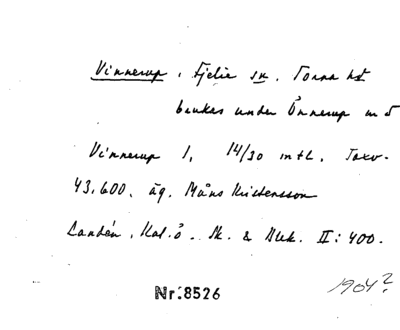 Vinnerup, Fjelie sn. Torna hd
brukas under Önnerup m 5
Vinnerup 1. 14/30 mtl. Taxv.
43.600. äg. Måns Kristensson
Landén, Kat. ö. Sk. & Blek. II: 400.
Nr. 8526
1904?